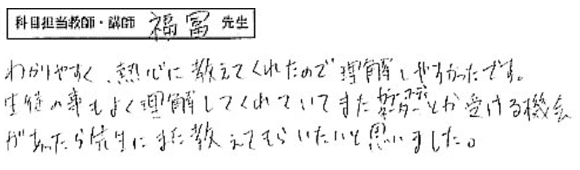 科目担当教師・講師 福冨 先生
わかりやすく、熱心に教えてくれたので理解しやすかったです。
生徒の事もよく理解してくれていてまた とか受ける機会
があったら先生にまた教えてもらいたいと思いました。